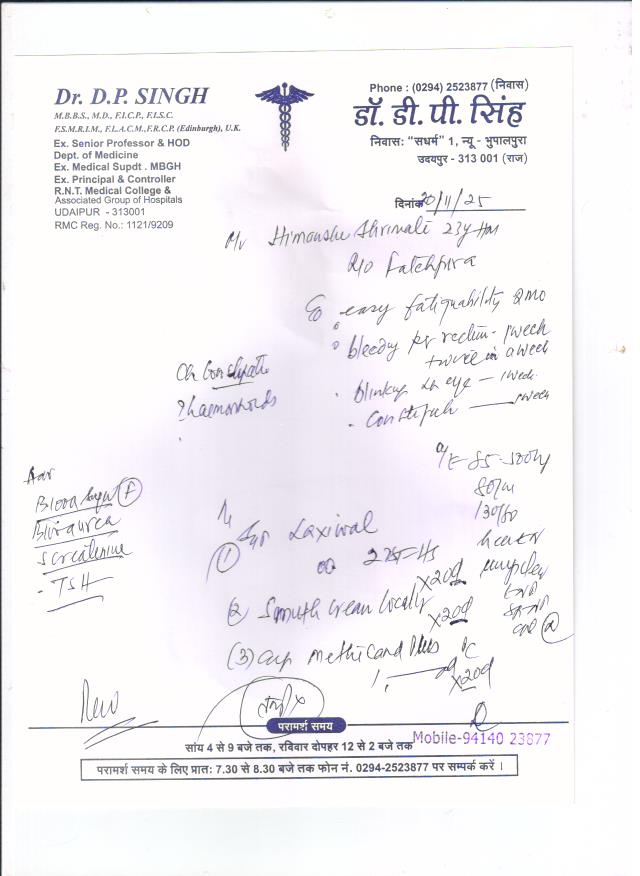 Dr. D.P. SINGH
M.B.B.S., M.D., F.I.C.P., F.I.S.C.
F.S.M.R.I.M., F.L.A.C.M.,F.R.C.P. (Edinburgh), U.K.
Ex. Senior Professor & HOD
Dept. of Medicine
Ex. Medical Supdt . MBGH
Ex. Principal & Controller
R.N.T. Medical College &
Associated Group of Hospitals
UDAIPUR - 313001
RMC Reg. No.: 1121/9209
Phone : (0294) 2523877 (निवास)
डॉ. डी. पी. सिंह
निवास: "सधर्म" 1, न्यू - भुपालपुरा
उदयपुर - 313 001 (राज)
दिनांक 20/11/25
Mr Himanshu Shrimali 23y
R/o Fatehpura
easy fatiguability 2mo
bleeding per rectum - 1week
twice in a week
eye - 1week
1week
Ch Constipatn
? haemorrhoids
Adv
Blood Sugar F
Blood urea
S creatinine
- TSH
130/80
① Syp Laxiwal
HS
x20d
② Smuth cream locally
x20d
(3) Cap Methicard Plus
x20d
परामर्श समय
सांय 4 से 9 बजे तक, रविवार दोपहर 12 से 2 बजे तक
Mobile-94140 23877
परामर्श समय के लिए प्रात: 7.30 से 8.30 बजे तक फोन नं. 0294-2523877 पर सम्पर्क करें ।